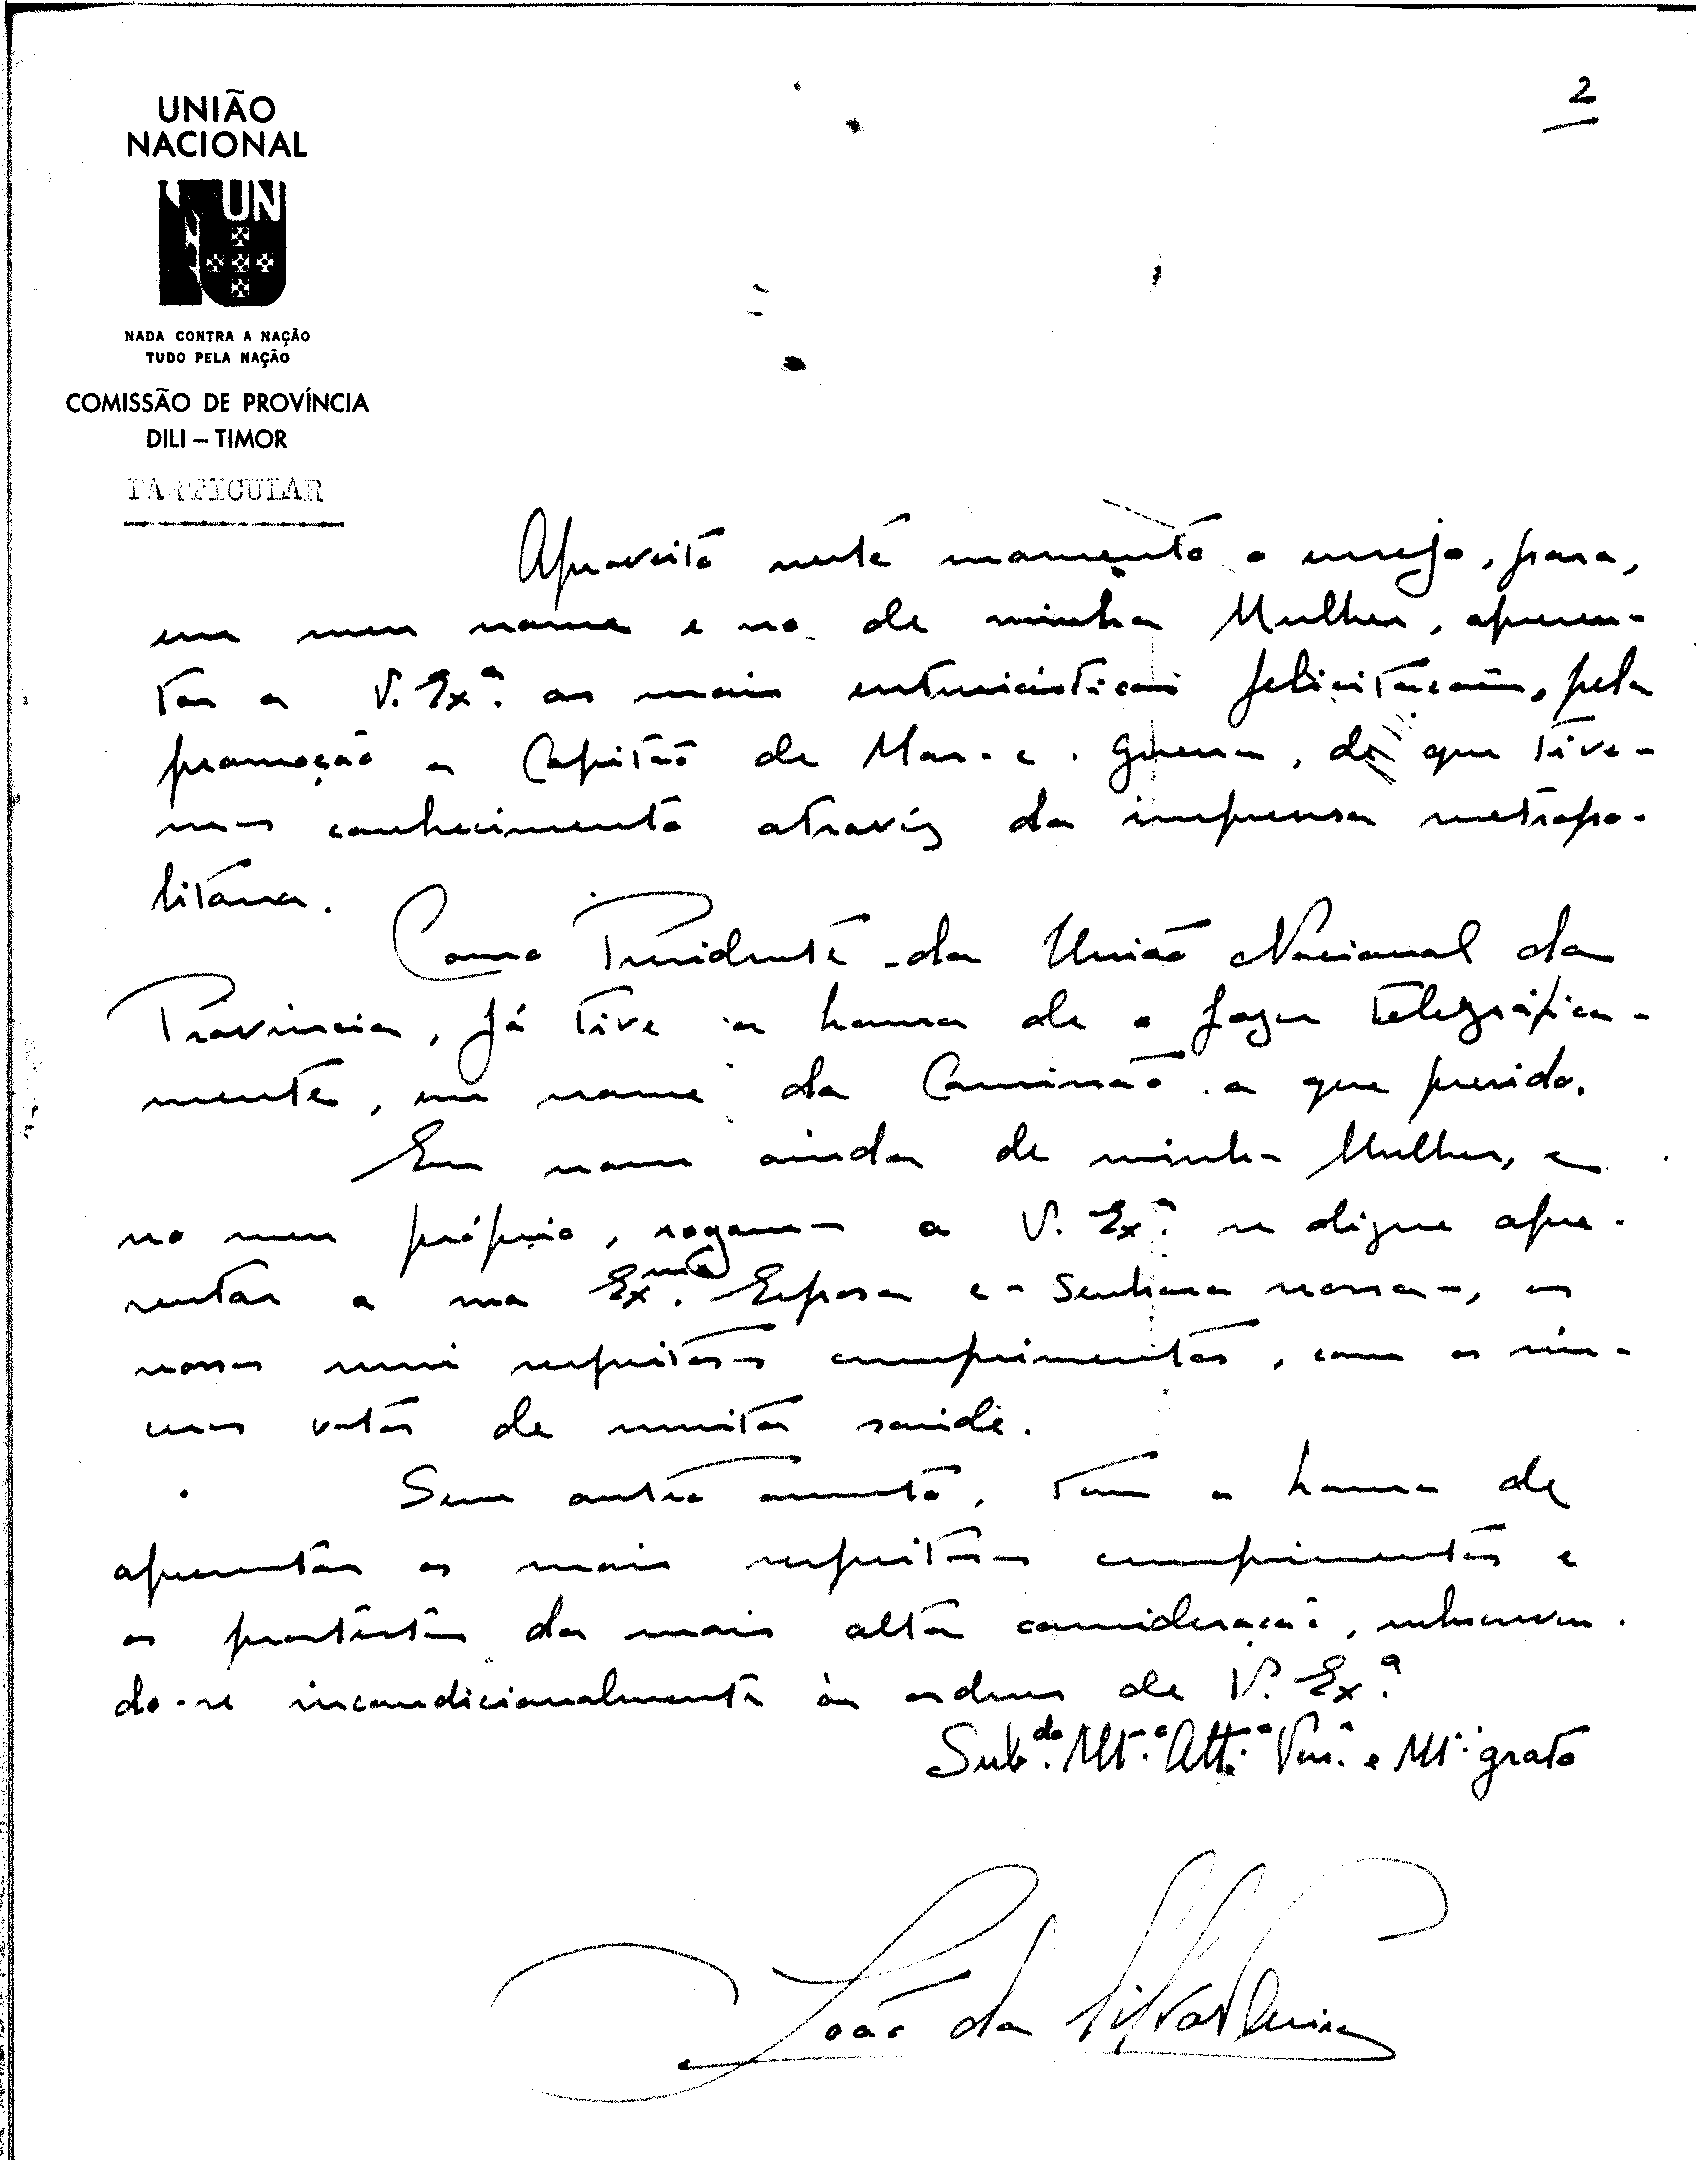 2
UNIÃO
NACIONAL
UN
NADA CONTRA A NAÇÃO
TUDO PELA NAÇÃO
COMISSÃO DE PROVÍNCIA
DILI – TIMOR
PARTICULAR
Aproveito neste momento o ensejo, para,
em meu nome e no de minha Mulher, apresen-
tar a V. Exª. as mais entusiásticas felicitações, pela
promoção a Capitão de Mar-e-Guerra, de que tive-
mos conhecimento através da imprensa metropo-
litana.
Como Presidente da União Nacional da
Província, já tive a honra de o fazer telegráfica-
mente, em nome da Comissão a que presido.
Em nome ainda de minha Mulher, e
no meu próprio, rogamos a V. Exª. se digne apre-
sentar a sua Exma. Esposa e Senhora nossa, os
nossos mui respeitosos cumprimentos, com os sin-
ceros votos de muita saúde.
Sem outro assunto, tem a honra de
apresentar os mais respeitosos cumprimentos e
os protestos da mais alta consideração, subscreven-
do-se incondicionalmente às ordens de V. Exª.
Subdo. Mtº. Attº. Venº. e Mtº. grato
João da Silva